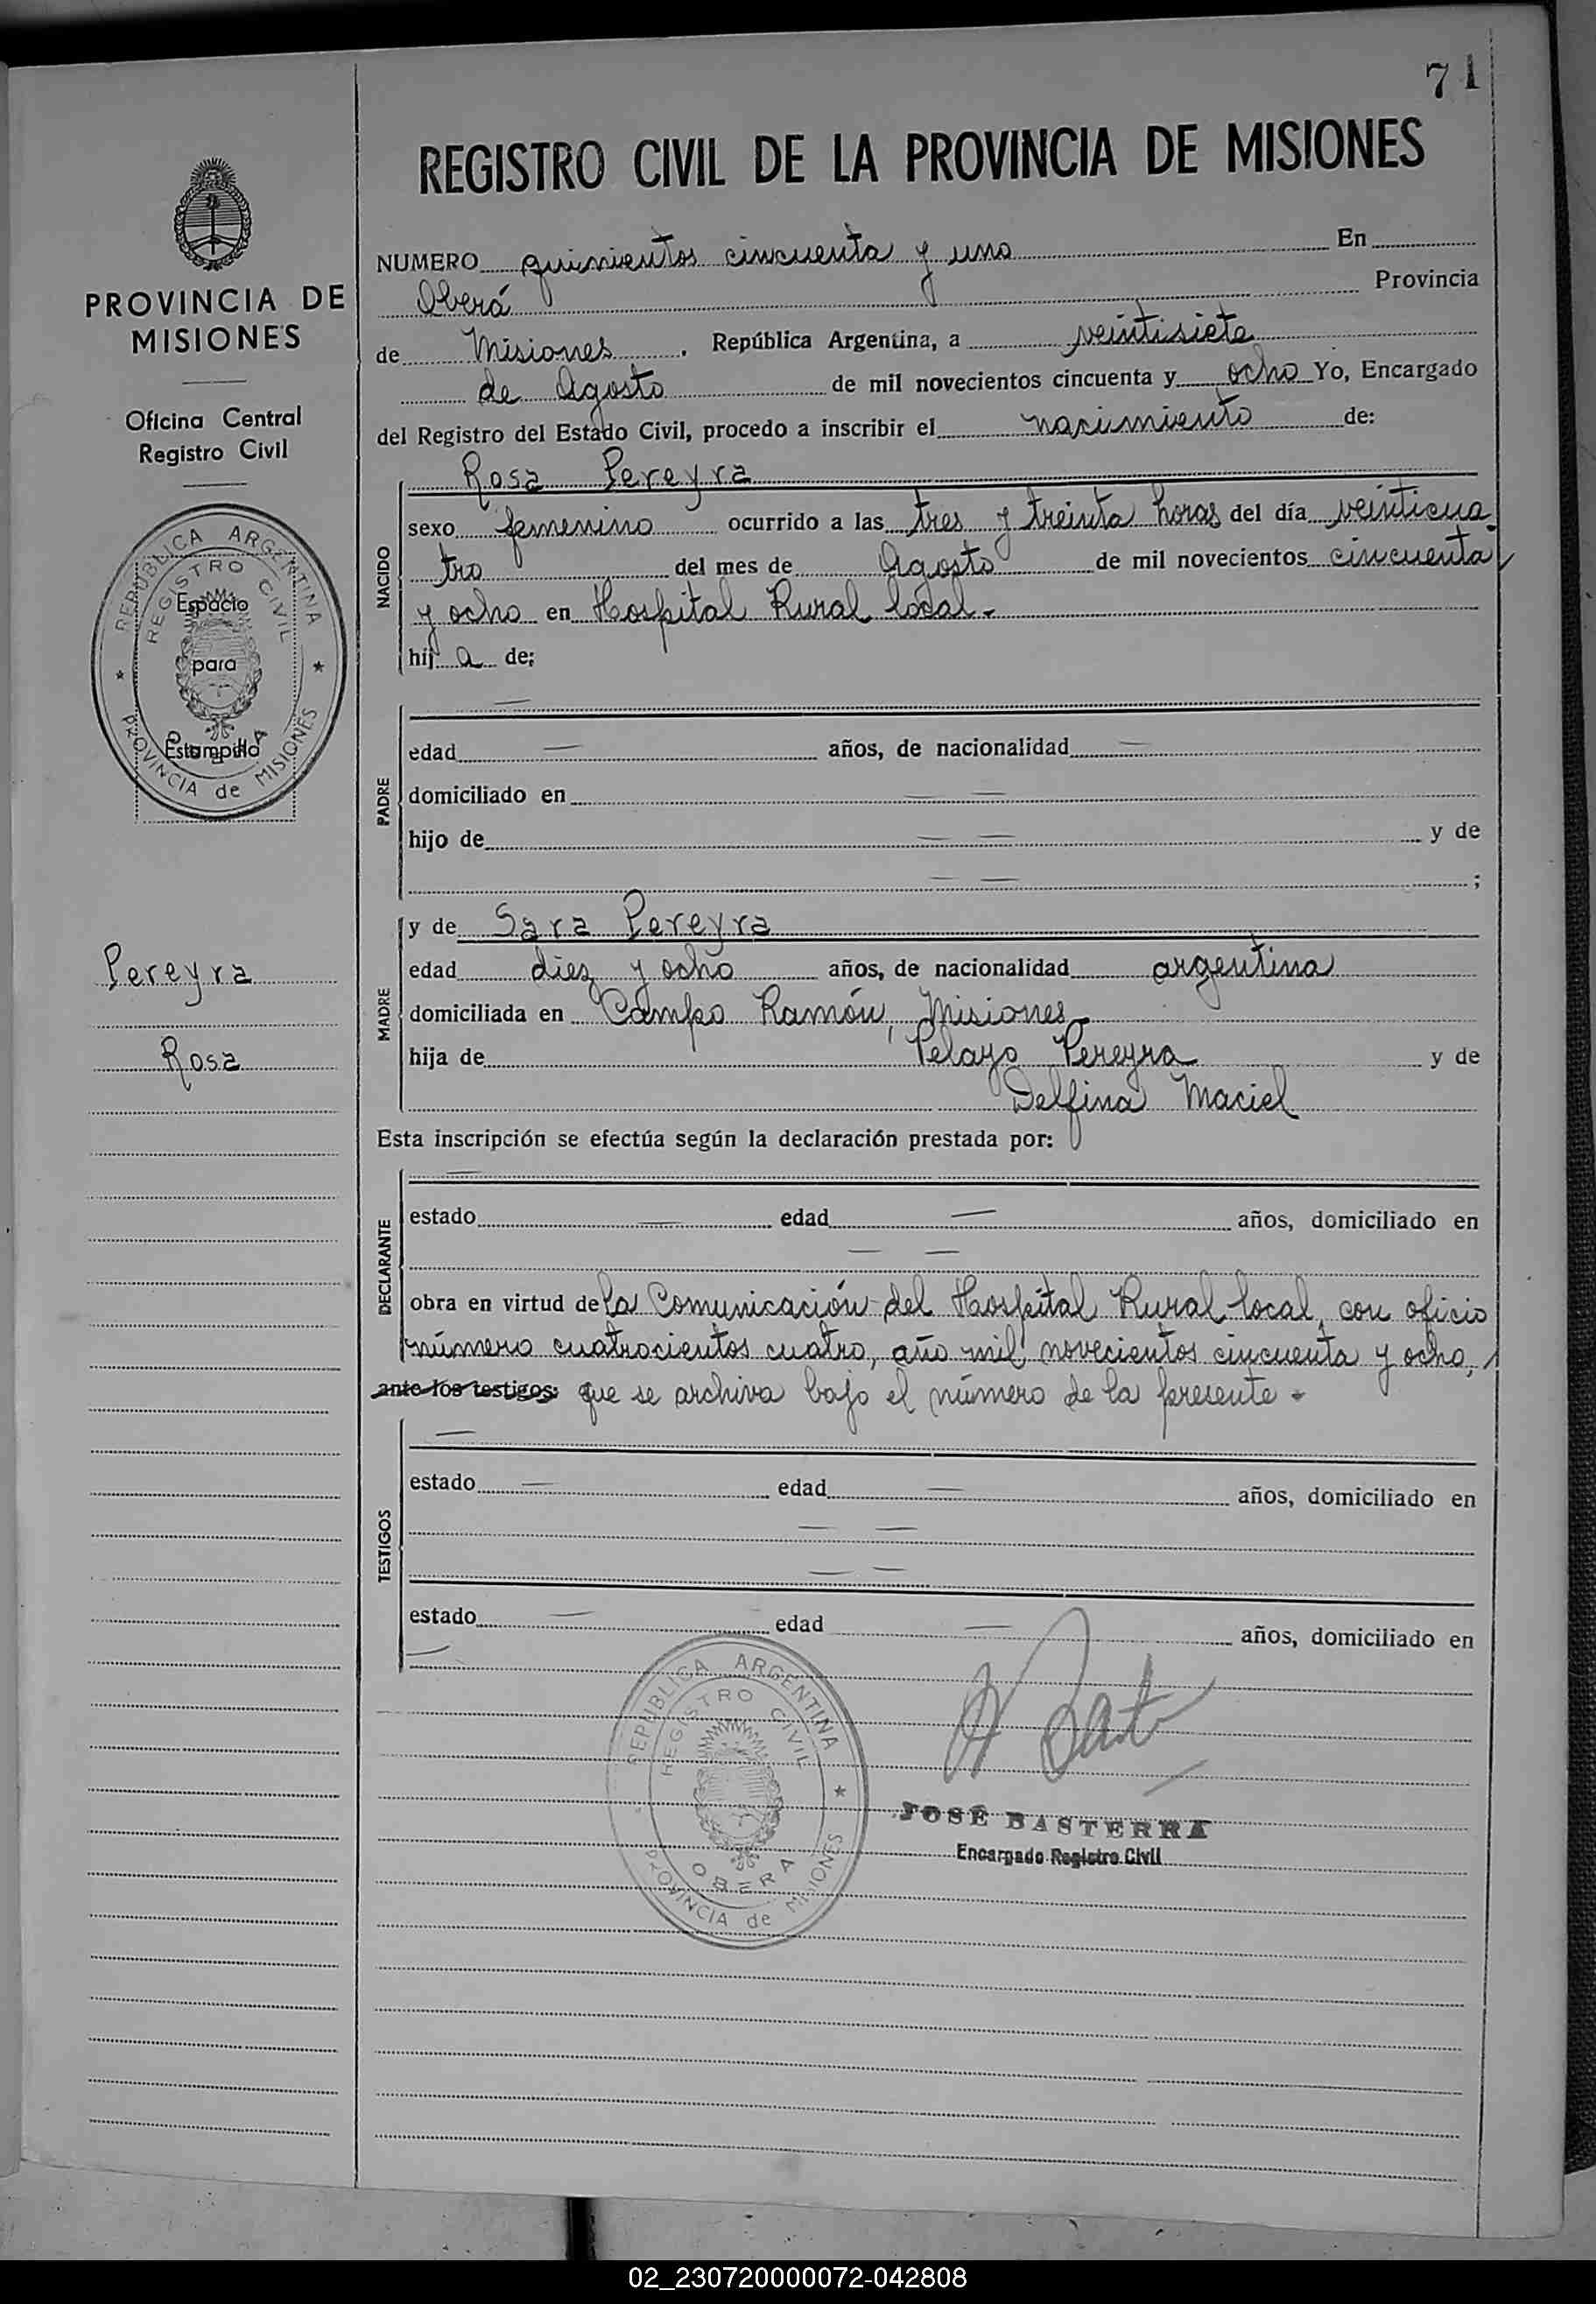 71
REGISTRO CIVIL DE LA PROVINCIA DE MISIONES
PROVINCIA DE
MISIONES
Oficina Central
Registro Civil
REPUBLICA ARGENTINA
REGISTRO CIVIL
Espacio
para
Estampilla
PROVINCIA de MISIONES
Pereyra
Rosa
NUMERO quinientos cincuenta y uno En
Oberá Provincia
de Misiones . República Argentina, a veintisiete
de Agosto de mil novecientos cincuenta y ocho Yo, Encargado
del Registro del Estado Civil, procedo a inscribir el nacimiento de:
NACIDO
Rosa Pereyra
sexo femenino ocurrido a las tres y treinta horas del día veinticua
tro del mes de Agosto de mil novecientos cincuenta
y ocho en Hospital Rural local.-
hij a de:
PADRE
edad — años, de nacionalidad —
domiciliado en — —
hijo de — — y de
— — ;
MADRE
y de Sara Pereyra
edad diez y ocho años, de nacionalidad argentina
domiciliada en Campo Ramón, Misiones
hija de Pelayo Pereyra y de
Delfina Maciel
Esta inscripción se efectúa según la declaración prestada por:
DECLARANTE
—
estado — edad — años, domiciliado en
— —
obra en virtud de la Comunicación del Hospital Rural local, con oficio
número cuatrocientos cuatro, año mil novecientos cincuenta y ocho,
ante los testigos: que se archiva bajo el número de la presente -
TESTIGOS
—
estado — edad — años, domiciliado en
— —
— —
estado — edad — años, domiciliado en
—
REPUBLICA ARGENTINA
REGISTRO CIVIL
OBERA
PROVINCIA de MISIONES
JOSÉ BASTERRA
Encargado Registro Civil
02_230720000072-042808